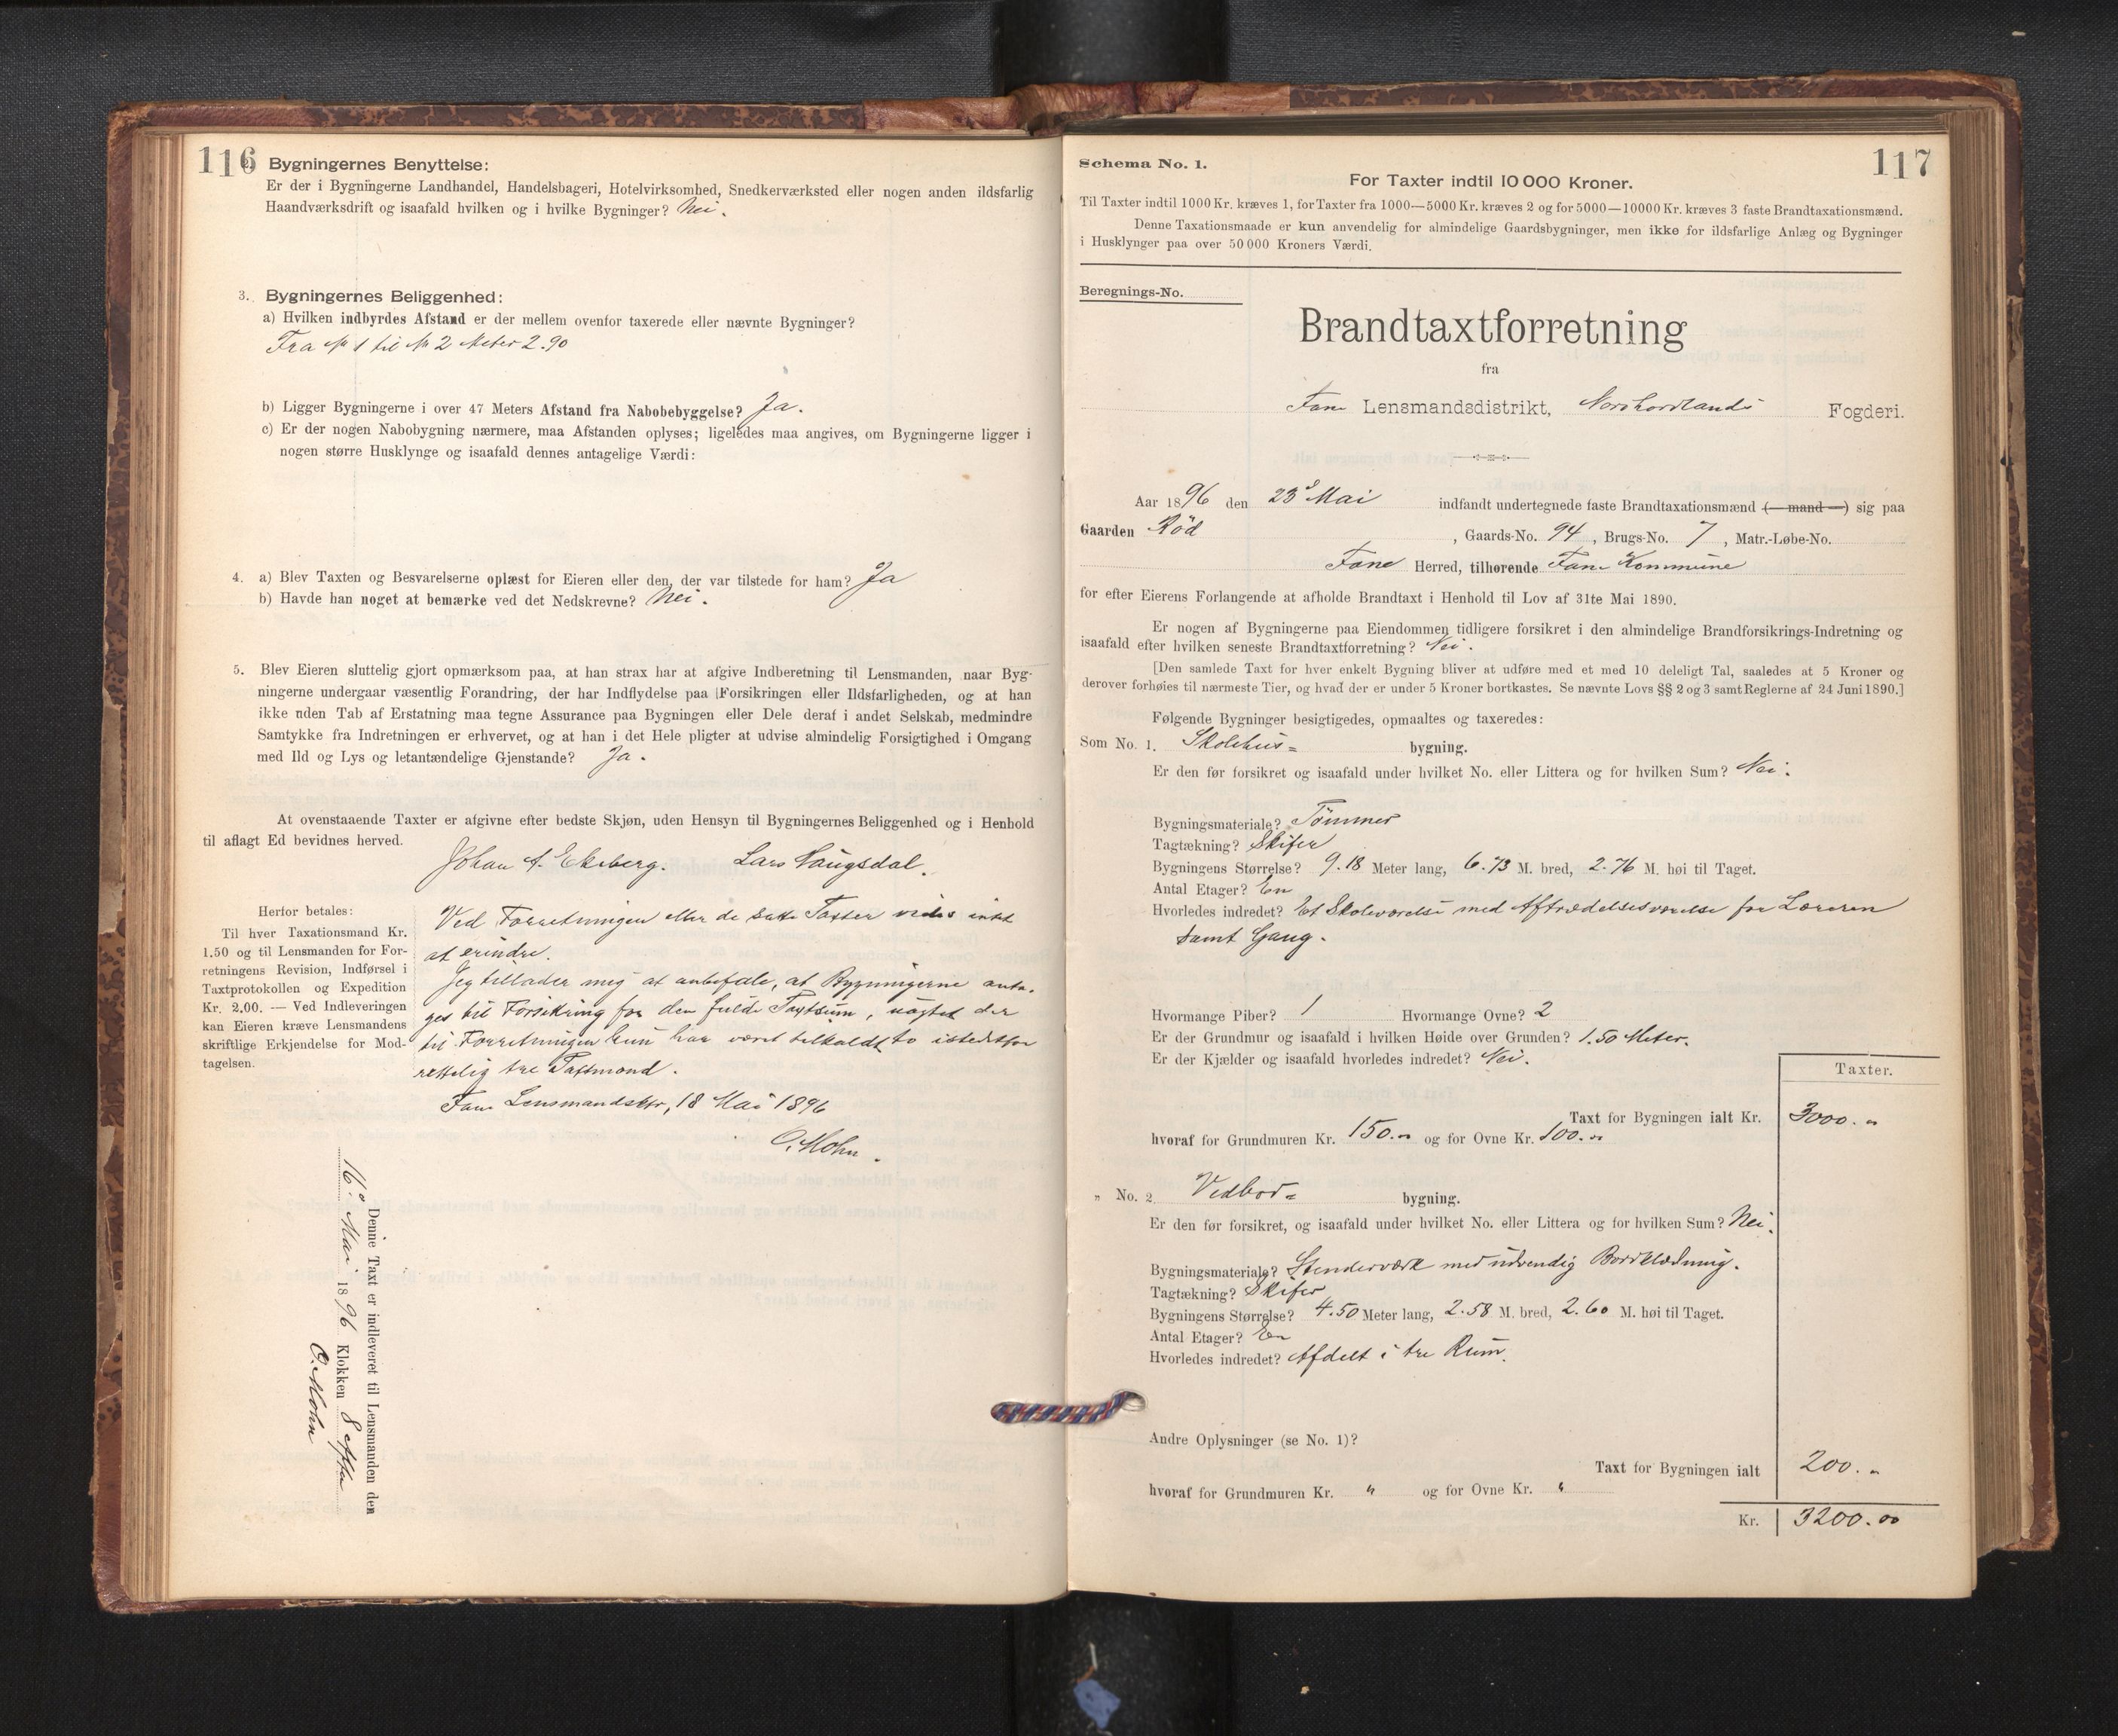 116
Bygningernes Benyttelse:
Er der i Bygningerne Landhandel, Handelsbageri, Hotelvirksomhed, Snedkerværksted eller nogen anden ildsfarlig
Haandværksdrift og isaafald hvilken og i hvilke Bygninger? Nei.
3. Bygningernes Beliggenhed:
a) Hvilken indbyrdes Afstand er der mellem ovenfor taxerede eller nævnte Bygninger?
Fra No 1 til No 2 Meter 2.90
b) Ligger Bygningerne i over 47 Meters Afstand fra Nabobebyggelse? Ja.
c) Er der nogen Nabobygning nærmere, maa Afstanden oplyses; ligeledes maa angives, om Bygningerne ligger i
nogen større Husklynge og isaafald dennes antagelige Værdi:
4. a) Blev Taxten og Besvarelserne oplæst for Eieren eller den, der var tilstede for ham? Ja
b) Havde han noget at bemærke ved det Nedskrevne? Nei.
5. Blev Eieren sluttelig gjort opmærksom paa, at han strax har at afgive Indberetning til Lensmanden, naar Byg-
ningerne undergaar væsentlig Forandring, der har Indflydelse paa Forsikringen eller Ildsfarligheden, og at han
ikke uden Tab af Erstatning maa tegne Assurance paa Bygningen eller Dele deraf i andet Selskab, medmindre
Samtykke fra Indretningen er erhvervet, og at han i det Hele pligter at udvise almindelig Forsigtighed i Omgang
med Ild og Lys og letantændelige Gjenstande? Ja.
At ovenstaaende Taxter er afgivne efter bedste Skjøn, uden Hensyn til Bygningernes Beliggenhed og i Henhold
til aflagt Ed bevidnes herved.
Johan A. Ekeberg. Lars Haugsdal.
Herfor betales:
Til hver Taxationsmand Kr.
1.50 og til Lensmanden for For-
retningens Revision, Indførsel i
Taxtprotokollen og Expedition
Kr. 2.00. — Ved Indleveringen
kan Eieren kræve Lensmandens
skriftlige Erkjendelse for Mod-
tagelsen.
Ved Forretningen eller de satte Taxter vides intet
at erindre.
Jeg tillader mig at anbefale, at Bygningerne anta-
ges til Forsikring for den fulde Taxtsum, uagtet der
til Forretningen kun har været tilkaldt to istedetfor
rettelig tre Taxtmænd.
Fane Lensmandsktr, 18 Mai 1896
O. Mohn.
Denne Taxt er indleveret til Lensmanden den
16de Mai 1896 Klokken 8 Aften
O. Mohn
Schema No. 1.
117
For Taxter indtil 10 000 Kroner.
Til Taxter indtil 1000 Kr. kræves 1, for Taxter fra 1000—5000 Kr. kræves 2 og for 5000—10000 Kr. kræves 3 faste Brandtaxationsmænd.
Denne Taxationsmaade er kun anvendelig for almindelige Gaardsbygninger, men ikke for ildsfarlige Anlæg og Bygninger
i Husklynger paa over 50 000 Kroners Værdi.
Beregnings-No.
Brandtaxtforretning
fra
Fane Lensmandsdistrikt, Nordhordlands Fogderi.
Aar 1896 den 23d Mai indfandt undertegnede faste Brandtaxationsmænd (— mand —) sig paa
Gaarden Röd, Gaards-No. 94, Brugs-No. 7, Matr.-Løbe-No.
Fane Herred, tilhørende Fane Kommune
for efter Eierens Forlangende at afholde Brandtaxt i Henhold til Lov af 31te Mai 1890.
Er nogen af Bygningerne paa Eiendommen tidligere forsikret i den almindelige Brandforsikrings-Indretning og
isaafald efter hvilken seneste Brandtaxtforretning? Nei.
[Den samlede Taxt for hver enkelt Bygning bliver at udføre med et med 10 deleligt Tal, saaledes at 5 Kroner og
derover forhøies til nærmeste Tier, og hvad der er under 5 Kroner bortkastes. Se nævnte Lovs §§ 2 og 3 samt Reglerne af 24 Juni 1890.]
Følgende Bygninger besigtigedes, opmaaltes og taxeredes:
Som No. 1. Skolehus= bygning.
Er den før forsikret og isaafald under hvilket No. eller Littera og for hvilken Sum? Nei.
Bygningsmateriale? Tömmer
Tagtækning? Skifer
Bygningens Størrelse? 9.18 Meter lang, 6.73 M. bred, 2.76 M. høi til Taget.
Antal Etager? En
Hvorledes indredet? Et Skoleværelse med Aftrædelsesværelse for Læreren
samt Gang.
Hvormange Piber? 1 Hvormange Ovne? 2
Er der Grundmur og isaafald i hvilken Høide over Grunden? 1.50 Meter.
Er der Kjælder og isaafald hvorledes indredet? Nei.
Taxter.
Taxt for Bygningen ialt Kr. 3000.„
hvoraf for Grundmuren Kr. 150.„ og for Ovne Kr. 100.„
„ No. 2 Vedbod= bygning.
Er den før forsikret, og isaafald under hvilket No. eller Littera og for hvilken Sum? Nei.
Bygningsmateriale? Stenderværk med udvendig Bordklædning.
Tagtækning? Skifer
Bygningens Størrelse? 4.50 Meter lang, 2.58 M. bred, 2.60 M. høi til Taget.
Antal Etager? En
Hvorledes indredet? Afdelt i tre Rum.
Andre Oplysninger (se No. 1)?
Taxt for Bygningen ialt 200.„
hvoraf for Grundmuren Kr. „ og for Ovne Kr. „
Kr. 3200.00